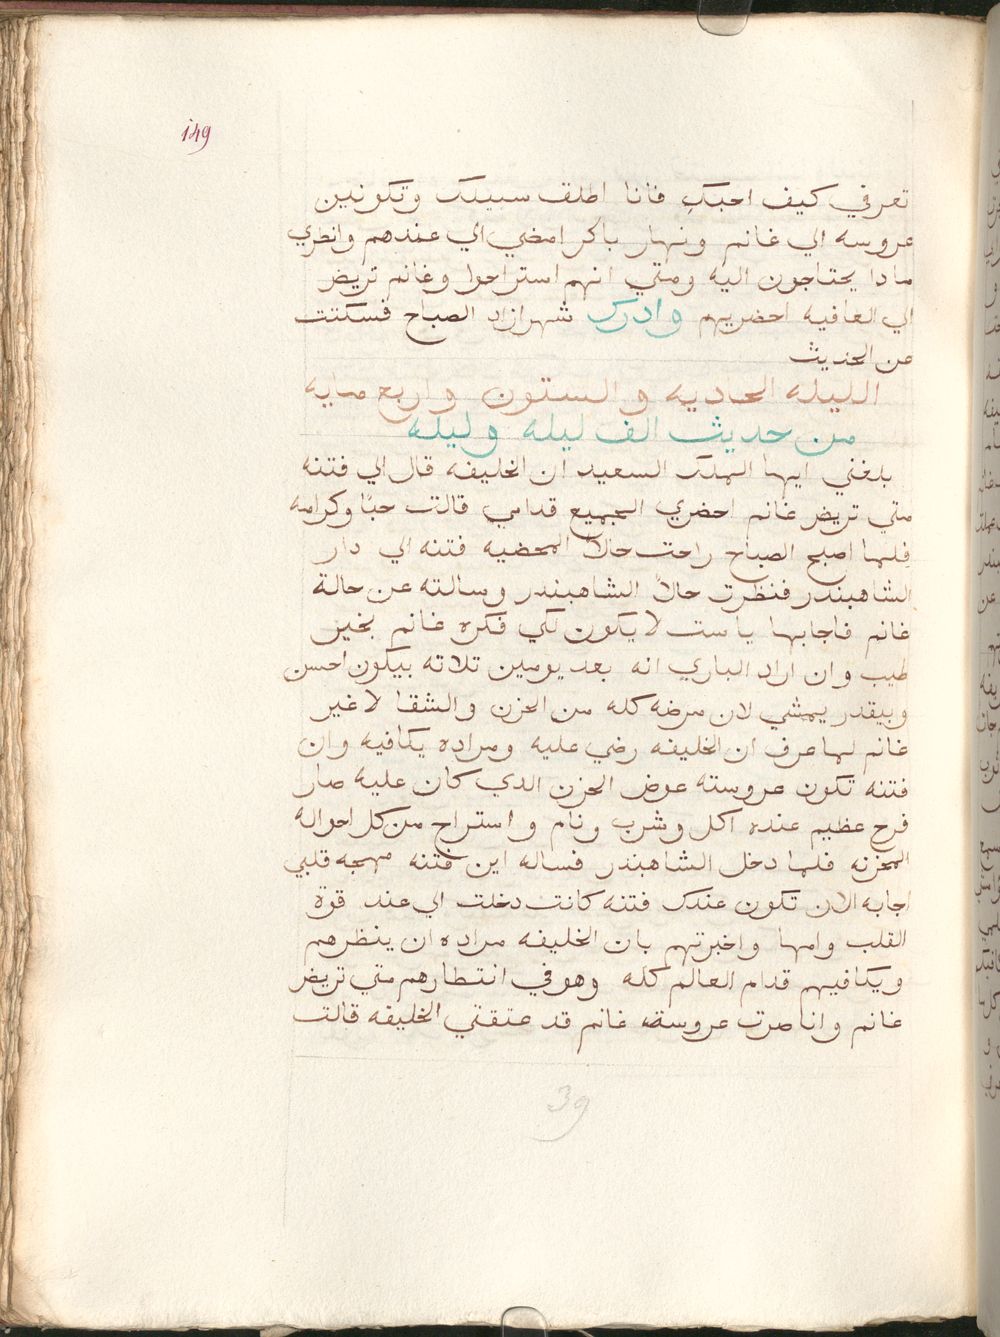 149
تعرفي كيف احبكِ فانا اطلق سبيلك وتكونين
عروسه الي غانم ونهار باكر امضي الي عندهم وانظري
مادا يحتاجون اليه ومتي انهم استراحوا وغانم تريض
الي العافيه احضريهم وادرك شهرازاد الصباح فسكتت
عن الحديث
الليله الحاديه والستون واربع مايه
من حديث الف ليله وليله
بلغني ايها الملك السعيد ان الخليفه قال الي فتنه
متي تريض غانم احضري الجميع قدامي قالت حبًا وكرامه
فلما اصبح الصباح راحت حالاً المحضيه فتنه الي دار
الشاهبندر فنظرت حالاً الشاهبندر وسالته عن حالة
غانم فاجابها يا ست لا يكون لكي فكره غانم بخير
طيب وان اراد الباري انه بعد يومين تلاته بيكون احسن
وبيقدر يمشي لان مرضه كله من الحزن والشقا لا غير
غانم لما عرف ان الخليفه رضي عليه ومراده يكافيه وان
فتنه تكون عروسته عوض الحزن الدي كان عليه صار
فرح عظيم عنده اكل وشرب ونام واستراح من كل احواله
المحزنه فلما دخل الشاهبندر فساله اين فتنه مهجه قلبي
اجابه الان تكون عندك فتنه كانت دخلت الي عند قوة
القلب وامها واخبرتهم بان الخليفه مراده ان ينظرهم
ويكافيهم قدام العالم كله وهو في انتطارهم متي تريض
غانم وانا صرت عروسة غانم قد عتقتي الخليفه قالت
39